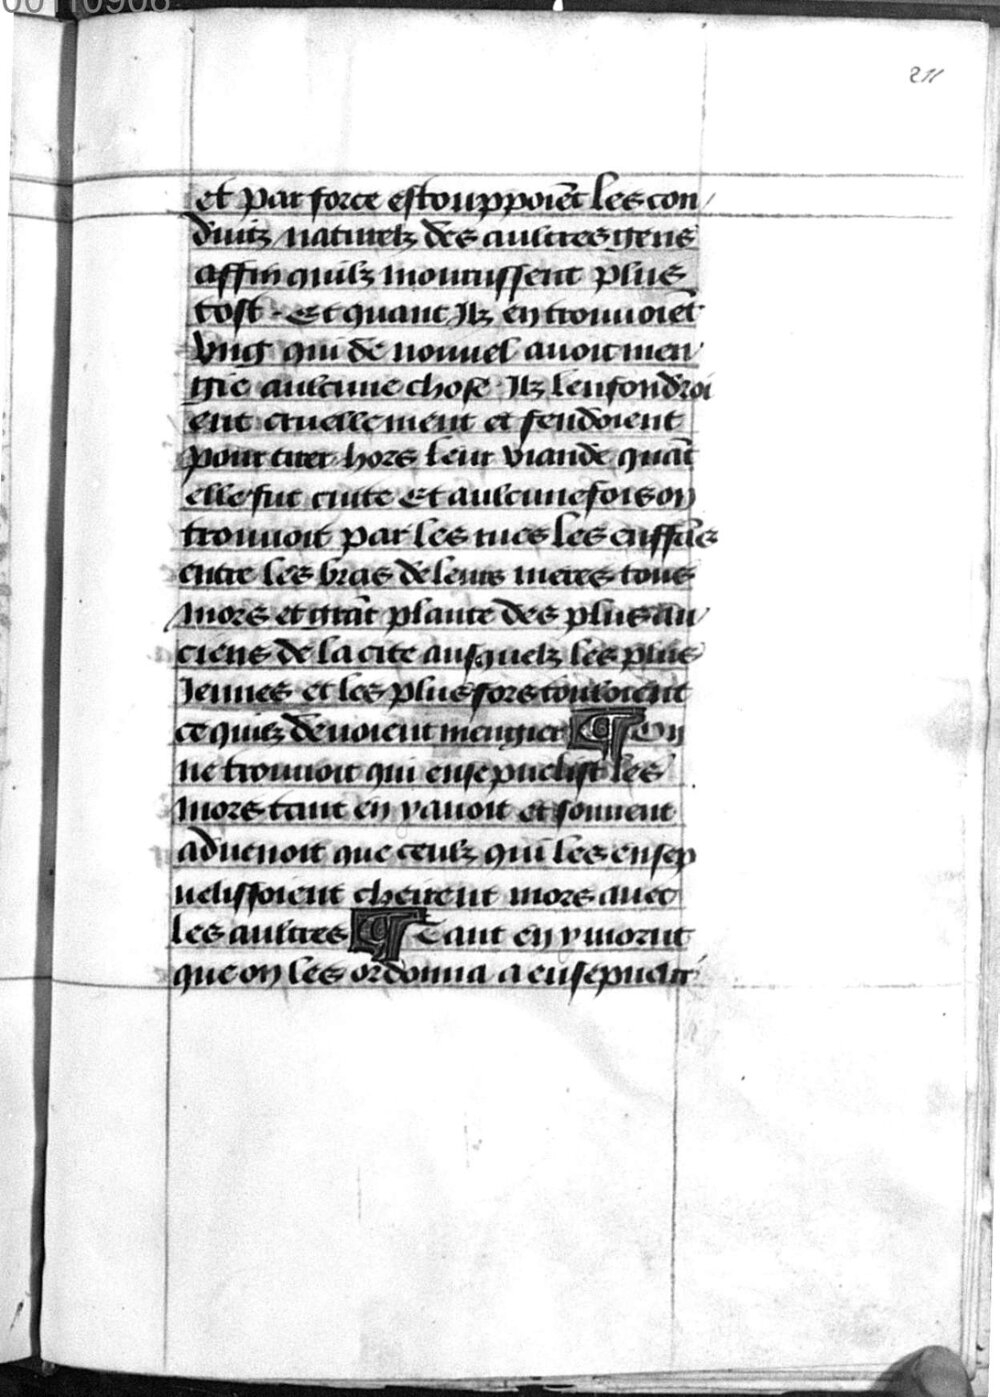 211
et par force estouppoiẽt les con
duitz naturelz des aultres gens
affin quilz mourussent plus
tost. Et quant Ilz en trouuoiẽt
Vng qui de nouuel auoit men
gie aulcune chose Ilz lenfondroi
ent cruellement et fendoient
pour tirer hors leur viande quãt
elle fut cuite Et aulcunefois on
trouuoit par les rues les enffãs
entre les bras de leurs meres tous
mors et grãt plante des plus an
ciens de la cite ausquelz les plus
Jennes et les plus fors touloient
ce quilz deuoient mengier ¶ On
ne trouuoit qui ensepuelist les
mors tant en y auoit et souuent
aduenoit que ceulz qui les ensep
uelissoient cheirent mors auec
les aultres ¶ Tant en y morut
que on les ordonna a ensepuelir